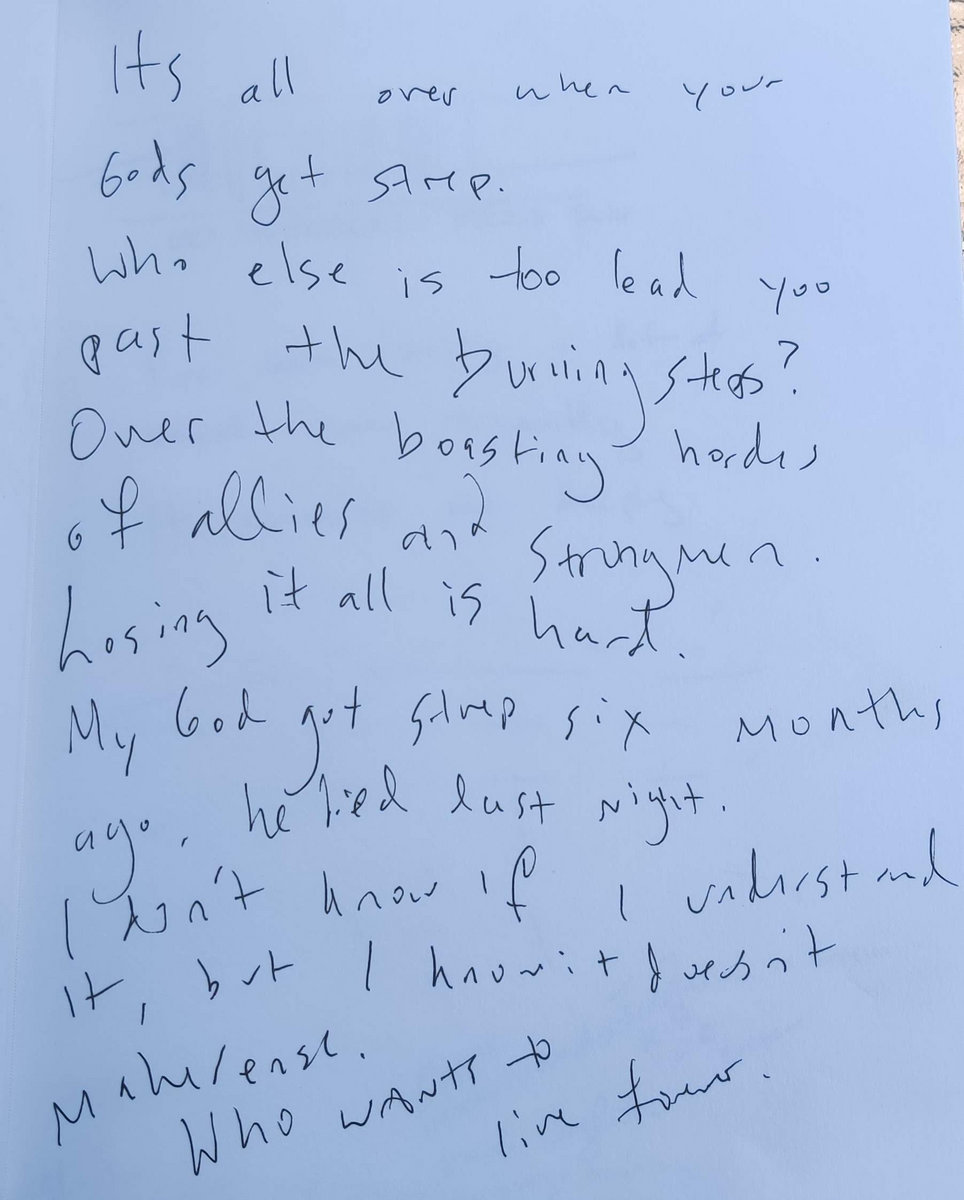 Its all over when your
Gods get strep.
Who else is too lead you
past the burning steps?
Over the boasting hordes
of allies and strongmen.
Losing it all is hard.
My God got strep six months
ago, he died last night.
I don't know if I understand
it, but I know it doesn't
make sense.
Who wants to
live forever.